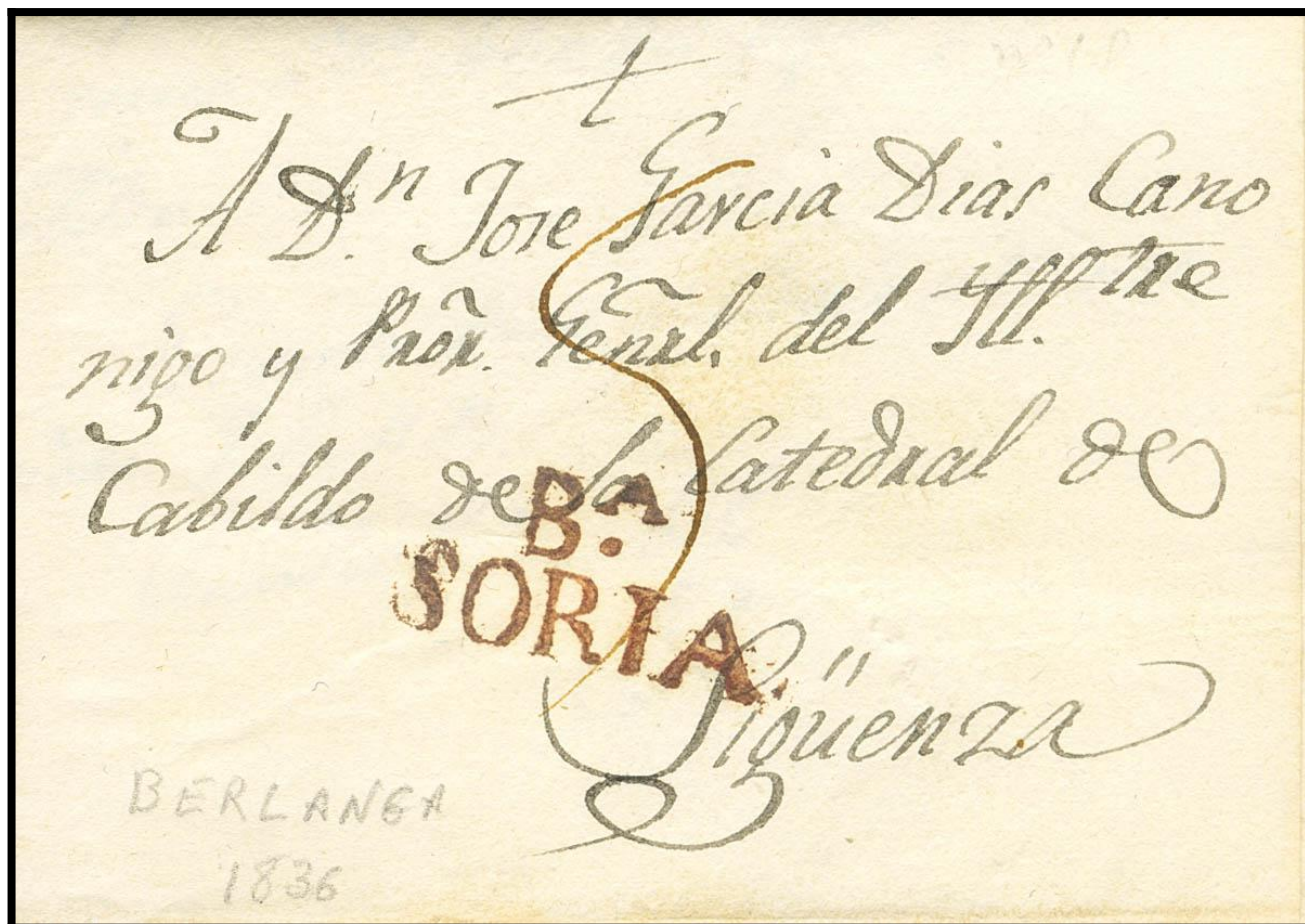 A Dn. Jose Garcia Dias Cano
nigo y Pror. Genrl. del Ill.tre
Cabildo de la Catedral de
Sigüenza
B.A
SORIA.
5
BERLANGA
1836